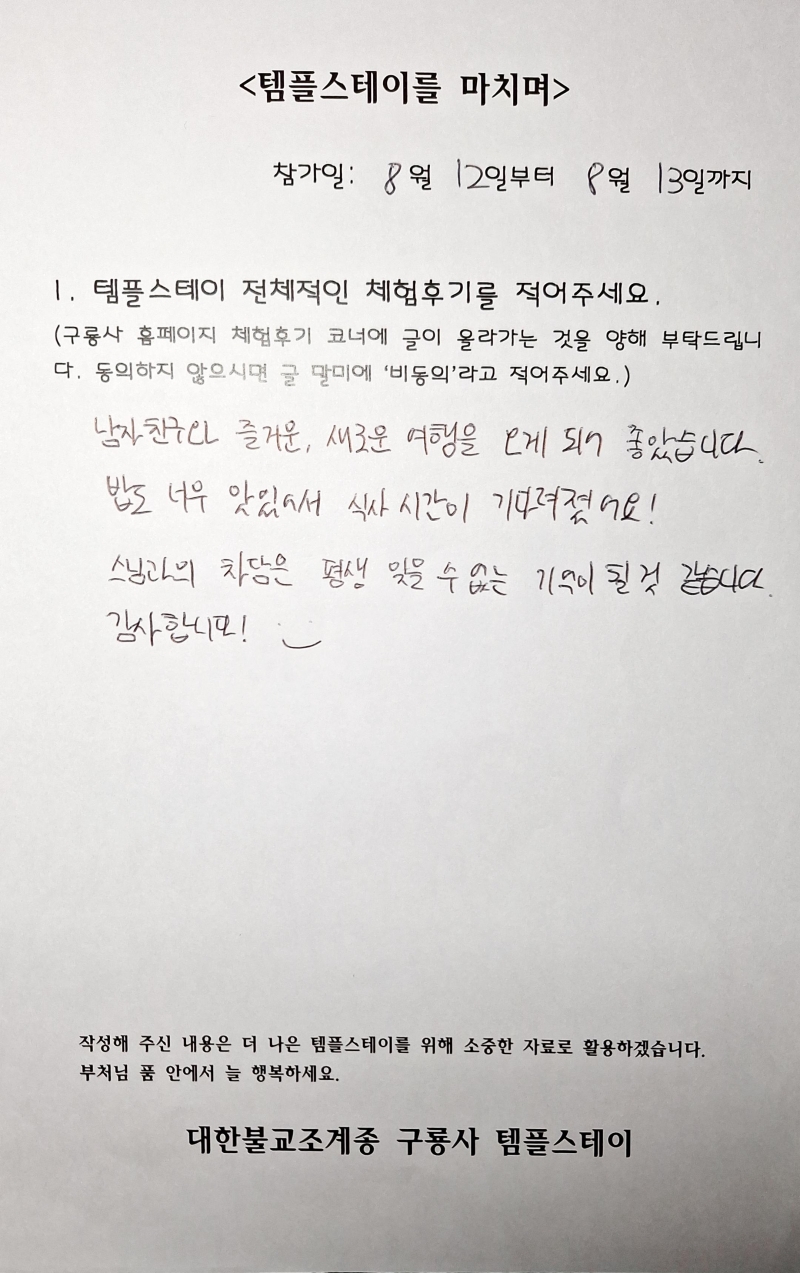 <템플스테이를 마치며>
참가일: 8월 12일부터 8월 13일까지
1. 템플스테이 전체적인 체험후기를 적어주세요.
(구룡사 홈페이지 체험후기 코너에 글이 올라가는 것을 양해 부탁드립니
다. 동의하지 않으시면 글 말미에 '비동의'라고 적어주세요.)
남자친구와 즐거운, 새로운 여행을 오게 되어 좋았습니다.
밥도 너무 맛있어서 식사 시간이 기다려졌어요!
스님과의 차담은 평생 잊을 수 없는 기억이 될 것 같습니다.
감사합니다!
작성해 주신 내용은 더 나은 템플스테이를 위해 소중한 자료로 활용하겠습니다.
부처님 품 안에서 늘 행복하세요.
대한불교조계종 구룡사 템플스테이